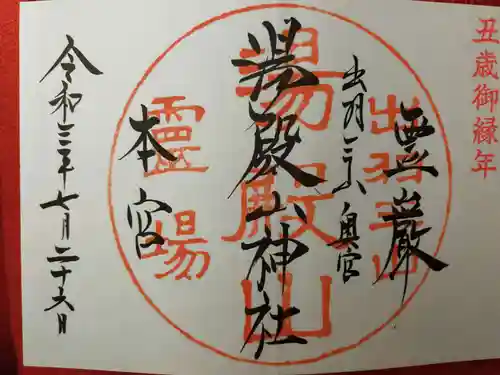 丑歳御縁年
霊巌
出羽三山奥宮
湯殿山神社
本宮
令和三年七月二十六日
出羽三山
湯殿山
霊場